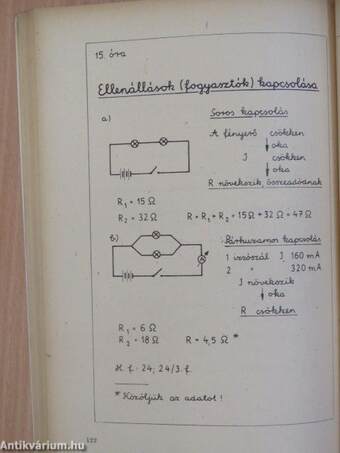 15. óra
Ellenállások (fogyasztók) kapcsolása
a)
Soros kapcsolás
A fényerő csökken
oka
I csökken
oka
R növekszik, összeadódnak
R₁ = 15 Ω
R₂ = 32 Ω
R = R₁ + R₂ = 15 Ω + 32 Ω = 47 Ω
b)
Párhuzamos kapcsolás
1 izzószál I 160 mA
2 " 320 mA
I növekszik
oka
R csökken
A
R₁ = 6 Ω
R₂ = 18 Ω
R = 4,5 Ω *
H. f. 24; 24/3. f.
* Közöljük az adatot!
122
Antikvárium.hu